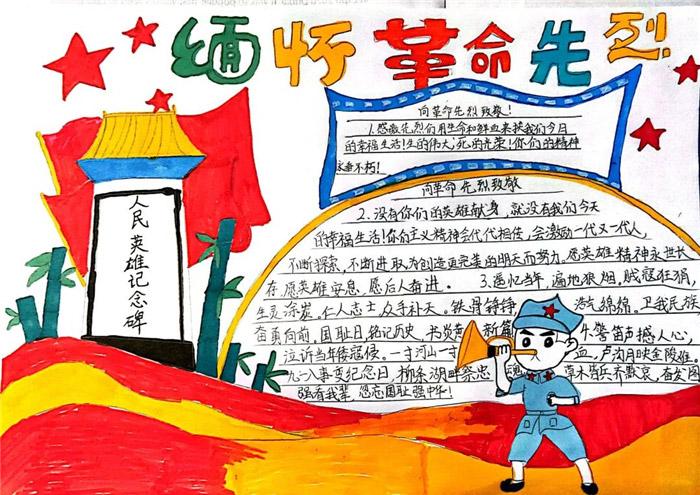 缅怀革命先烈
向革命先烈致敬!
1.感激先烈们用生命和鲜血来换我们今日
的幸福生活!生的伟大,死的光荣!你们的精神
永垂不朽!
人民英雄记念碑
向革命先烈致敬
2、没有你们的英雄献身,就没有我们今天
的幸福生活!你们主义精神会代代相传,会激励一代又一代人,
不断探索,不断进取为创造更完美的明天而努力。愿英雄精神永世长
存,愿英雄安息,愿后人奋进。 3、遥忆当年,遍地狼烟,贼寇狂猖,
生灵涂炭。仁人志士,众手补天。铁骨铮铮 浩气绵绵。卫我民族
奋勇向前,国耻日,铭记历史,书炎黄 新篇 4、警笛声撼人心,
泣诉当年倭寇侵。一寸河山一寸 血,卢沟月映金陵雄。
九一八事变纪念日,柳条湖畔祭忠 魂 草木皆兵齐默哀,奋发图
强看我辈,勿忘国耻强中华!